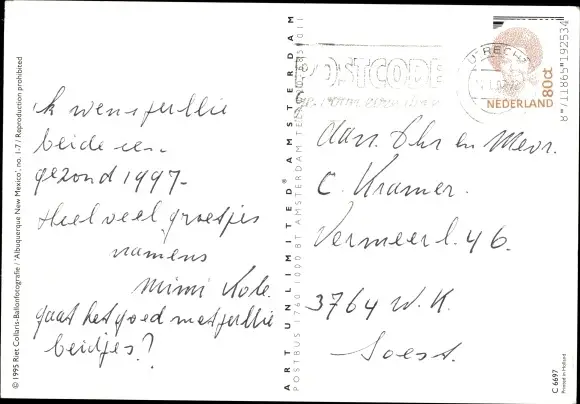 ik wens jullie
beide een
gezond 1997-
Heel veel groetjes
namens
Mimi Kole.
gaat het goed met jullie
beidjes?
© 1995 Riet Collaris-Ballonfotografie / 'Albuquerque New Mexico', no. 1-7 / Reproduction prohibited
ART UNLIMITED® AMSTERDAM
POSTBUS 1760 1000 BT AMSTERDAM
POSTCODE
UTRECHT
NEDERLAND 80ct
8"711865"192534
Aan. Dhr en Mevr.
C. Kramer.
Vermeerl. 46.
3764 W.K.
Soest.
C 6697
Printed in Holland